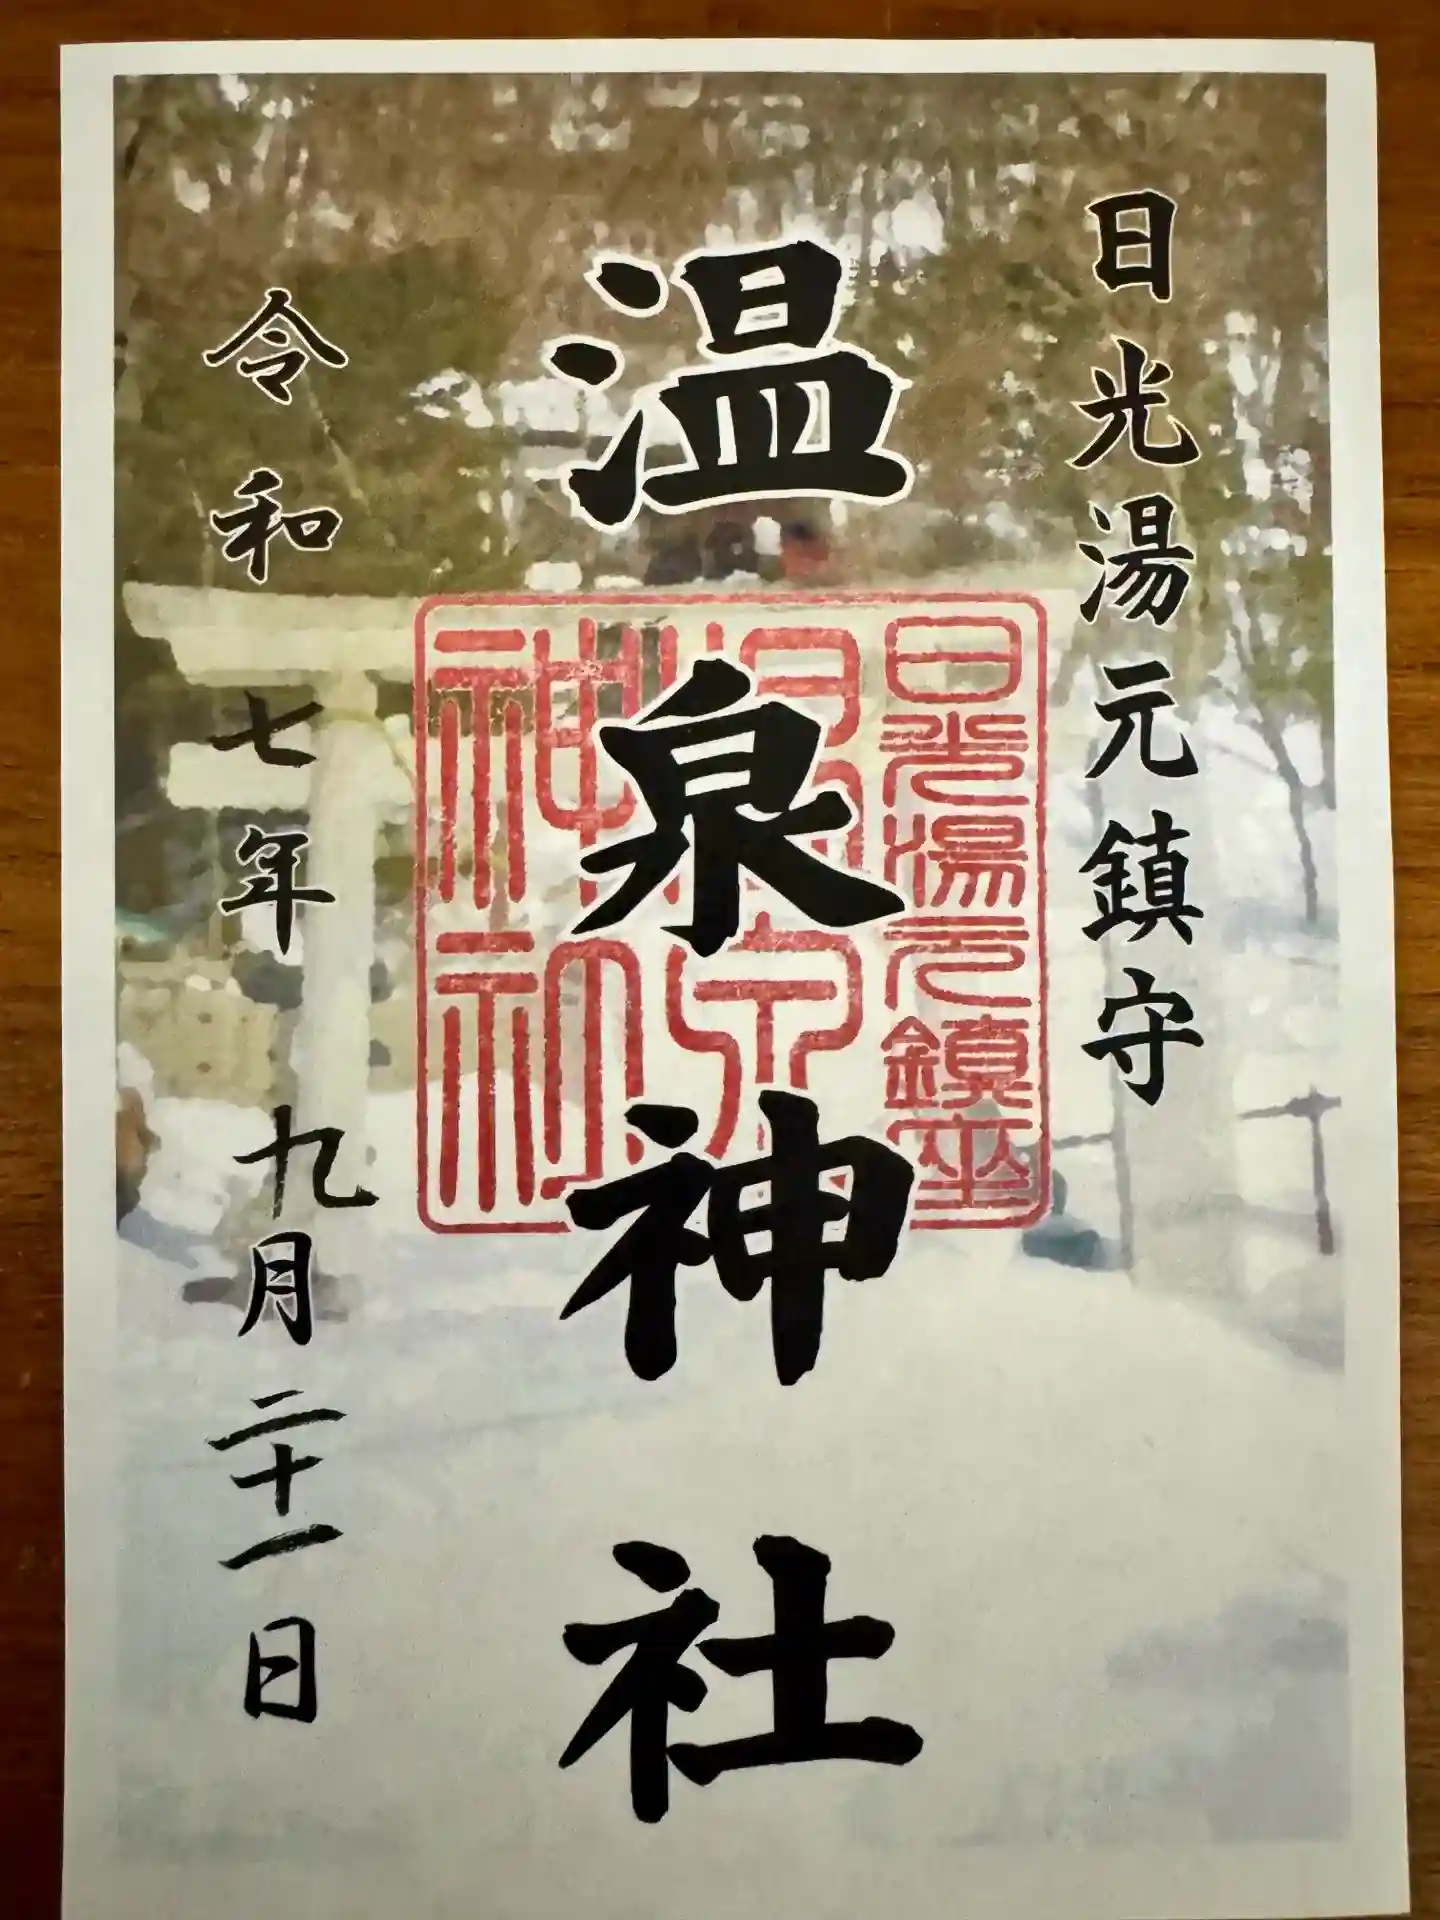 日光湯元鎮守
温泉神社
令和七年九月二十一日
日光湯元鎮座
温泉
神社